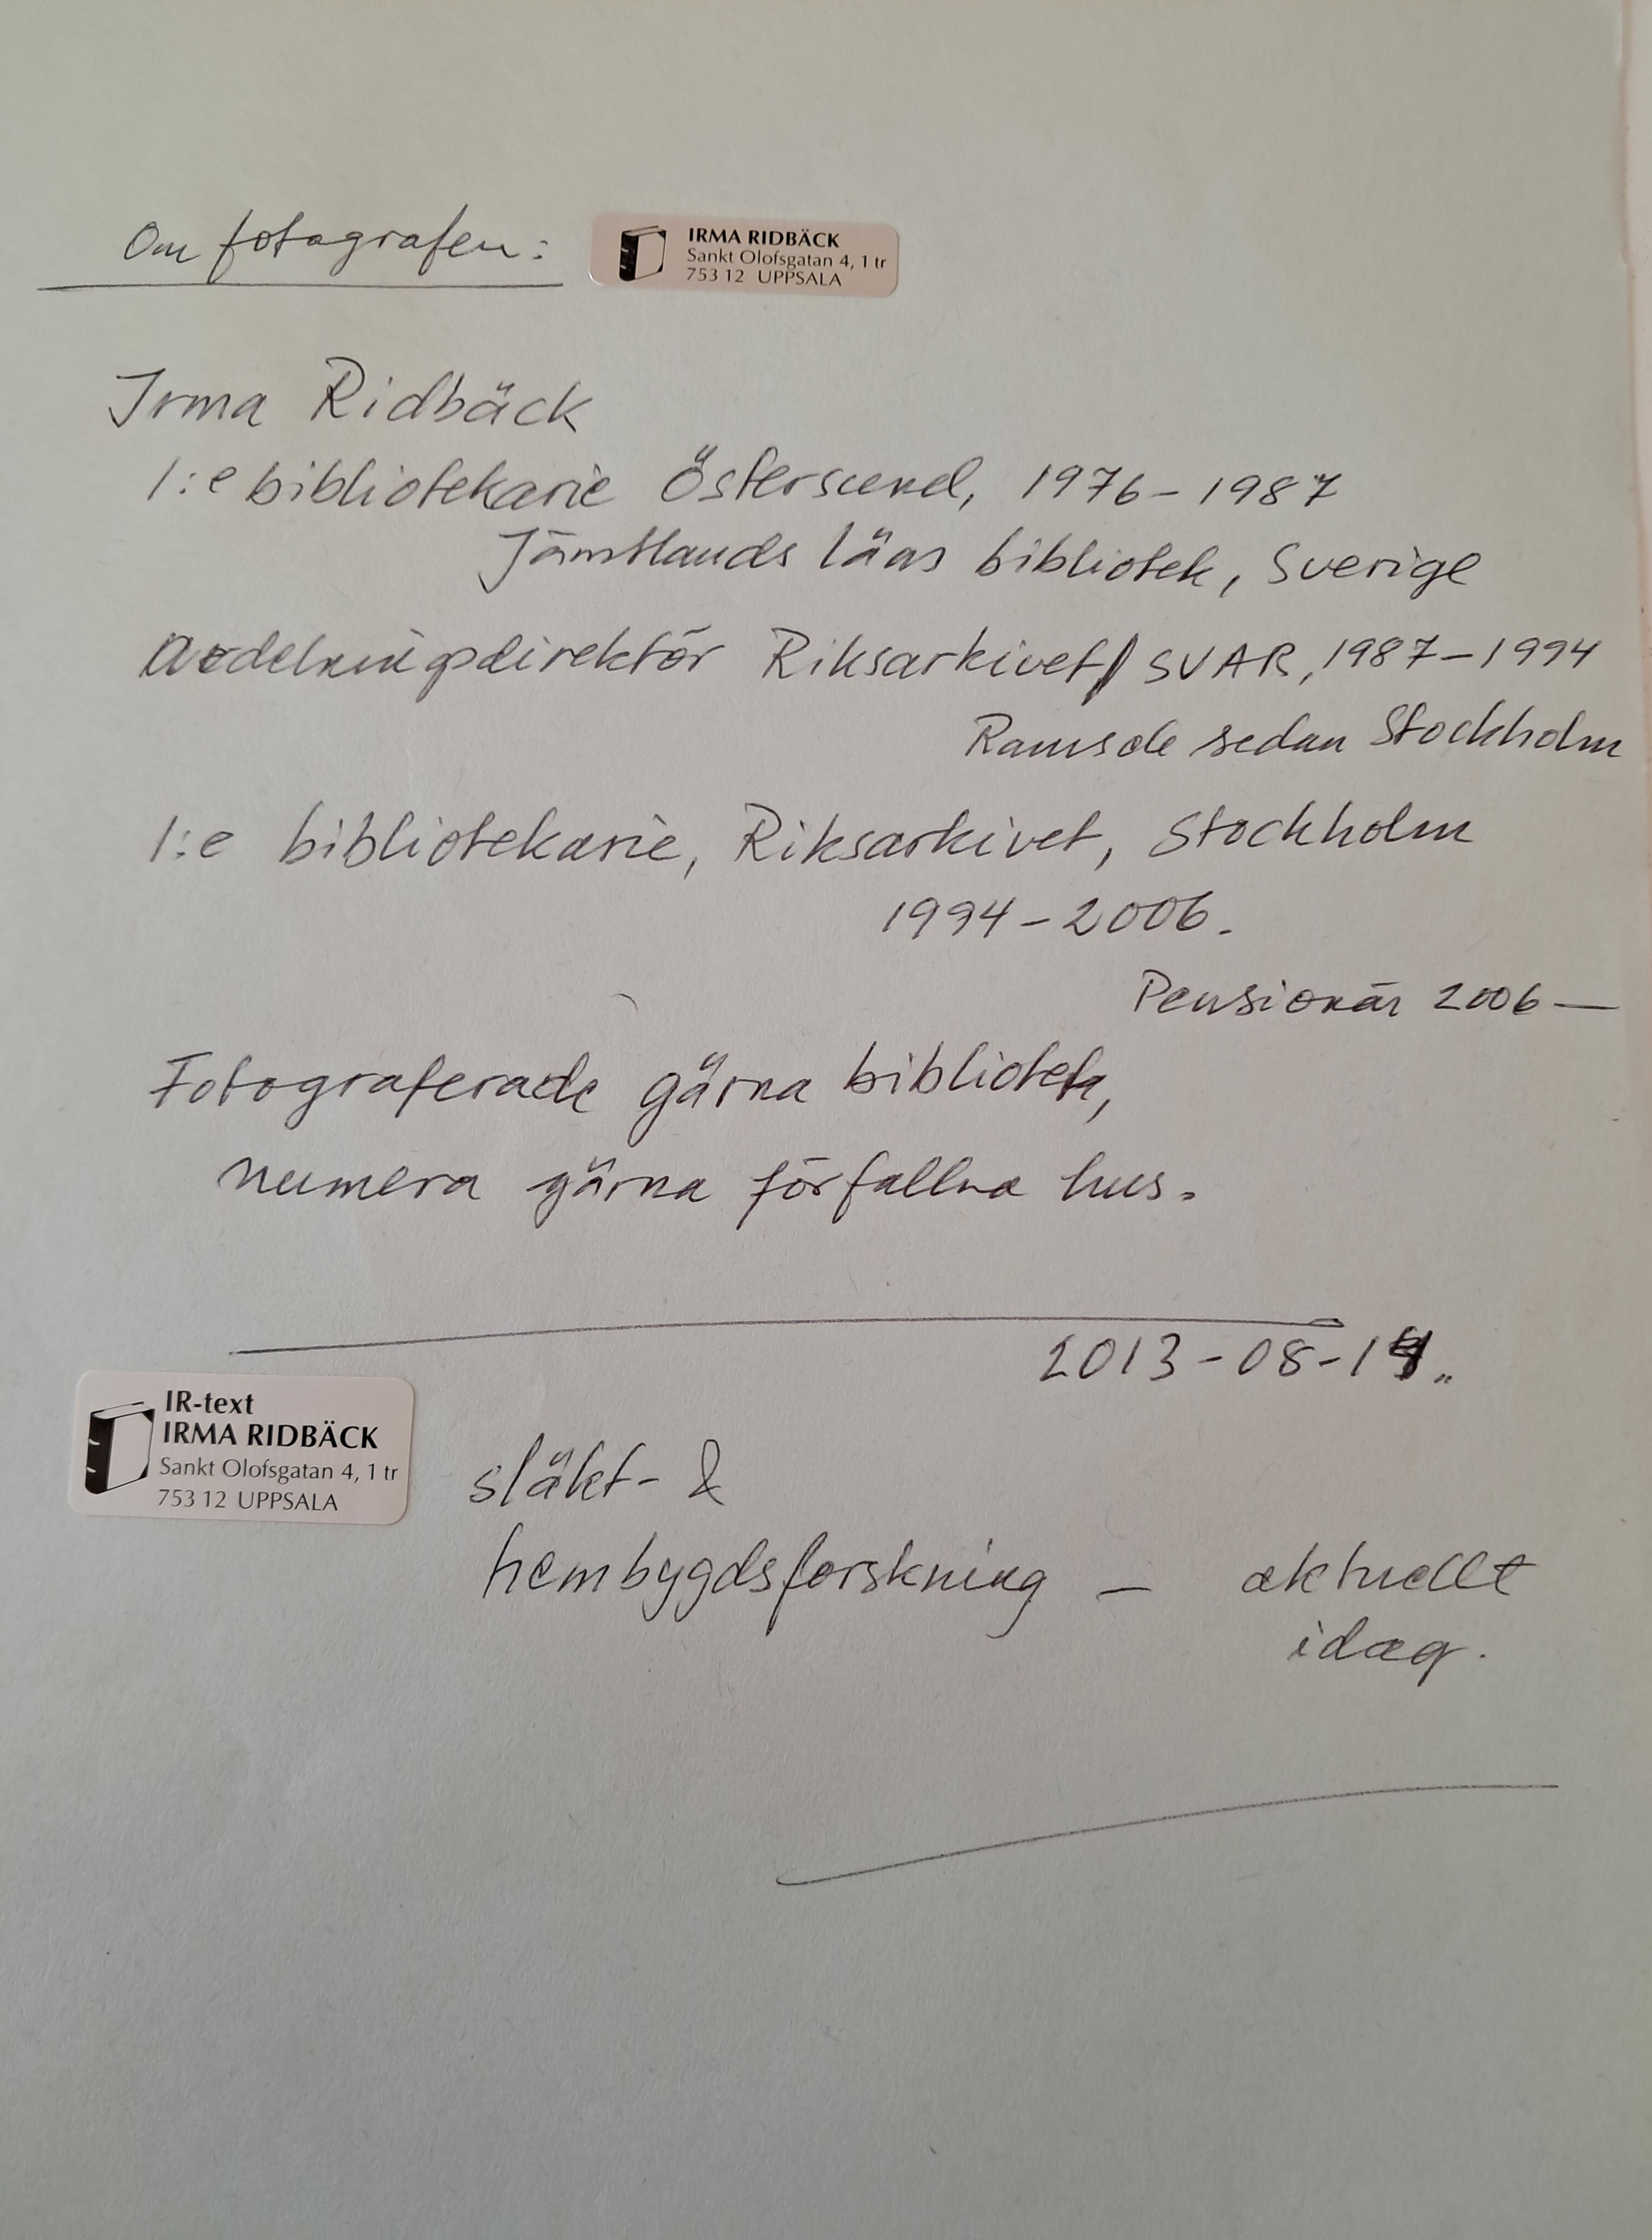 Om fotografen:
IRMA RIDBÄCK
Sankt Olofsgatan 4, 1 tr
753 12 UPPSALA
Irma Ridbäck
1:e bibliotekarie Östersund, 1976-1987
Jämtlands läns bibliotek, Sverige
Avdelningsdirektör Riksarkivet/SVAR, 1987-1994
Ramsele sedan Stockholm
1:e bibliotekarie, Riksarkivet, Stockholm
1994-2006.
Pensionär 2006—
Fotograferade gärna bibliotek,
numera gärna förfallna hus.
2013-08-14.
IR-text
IRMA RIDBÄCK
Sankt Olofsgatan 4, 1 tr
753 12 UPPSALA
släkt- &
hembygdsforskning — aktuellt
idag.